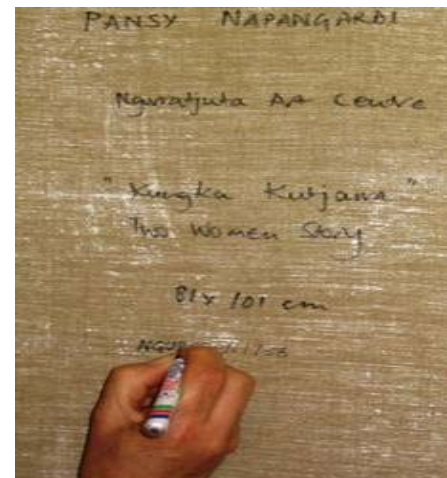 PANSY NAPANGARDI
Ngurratjuta Art Centre
"Kungka Kutjara"
Two Women Story
81 x 101 cm